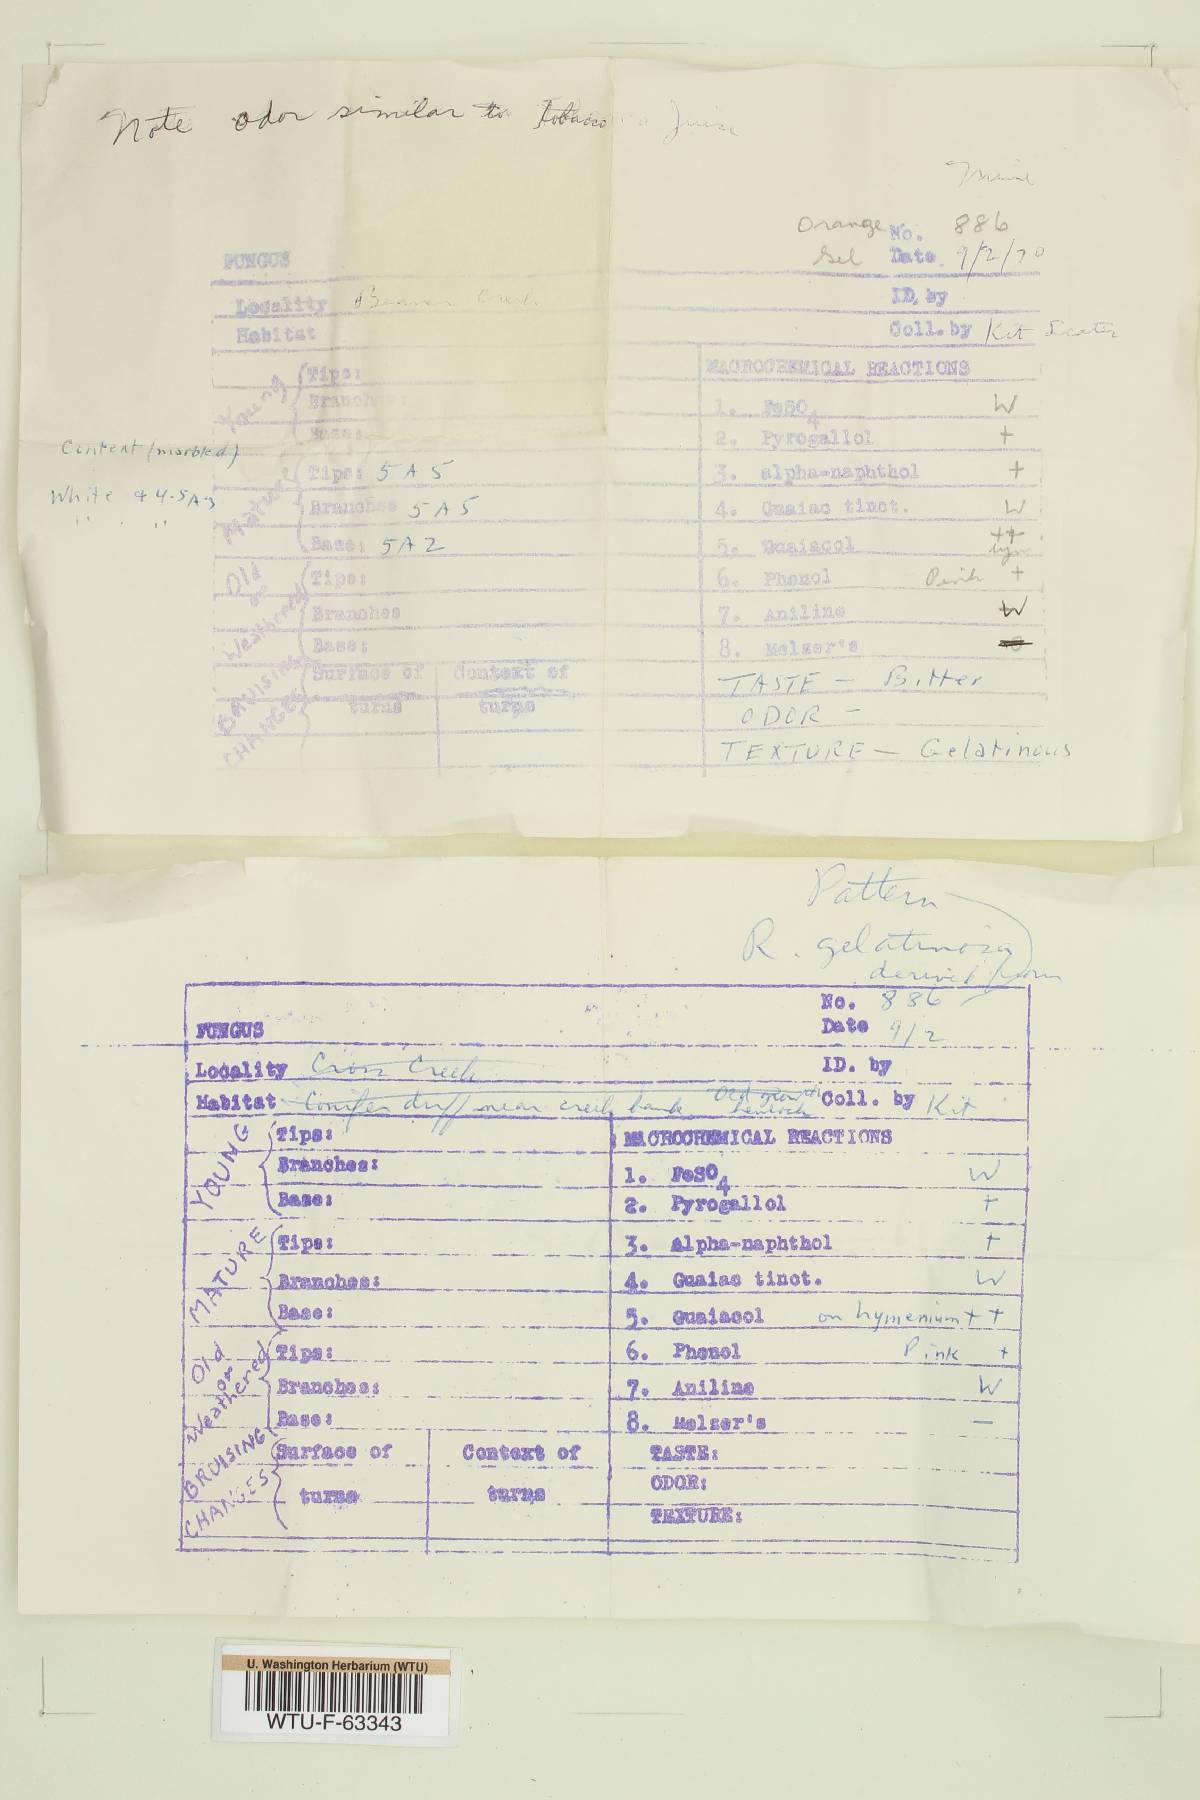 Note odor similar to tobacco Juice
Orange No. 886
Gel Date 9/2/70
FUNGUS
ID. by
Locality Beaver Creek
Habitat Coll. by Kit Scates
Young Tips:
Branches:
Base:
MACROCHEMICAL REACTIONS
1. FeSO4 W
2. Pyrogallol +
Context (marbled)
White & 4-5A3
" "
Mature Tips: 5A5
Branches 5A5
Base: 5A2
3. alpha-naphthol +
4. Guaiac tinct. W
5. Guaiacol ++ hym
Old or Weathered Tips:
Branches
Base:
6. Phenol Pink +
7. Aniline W
8. Melzer's
BRUISING CHANGES Surface of turns Context of turns
TASTE — Bitter
ODOR —
TEXTURE — Gelatinous
Pattern
R. gelatinosa
derived from
No. 886
FUNGUS Date 9/2
Locality Cross Creek ID. by
Habitat Conifer duff near creek bank Old growth hemlock Coll. by Kit
YOUNG Tips:
Branches:
Base:
MACROCHEMICAL REACTIONS
1. FeSO4 W
2. Pyrogallol +
MATURE Tips:
Branches:
Base:
3. alpha-naphthol +
4. Guaiac tinct. W
5. Guaiacol on hymenium ++
Old or Weathered Tips:
Branches:
Base:
6. Phenol Pink +
7. Aniline W
8. Melzer's —
BRUISING CHANGES Surface of turns Context of turns
TASTE:
ODOR:
TEXTURE:
U. Washington Herbarium (WTU)
WTU-F-63343